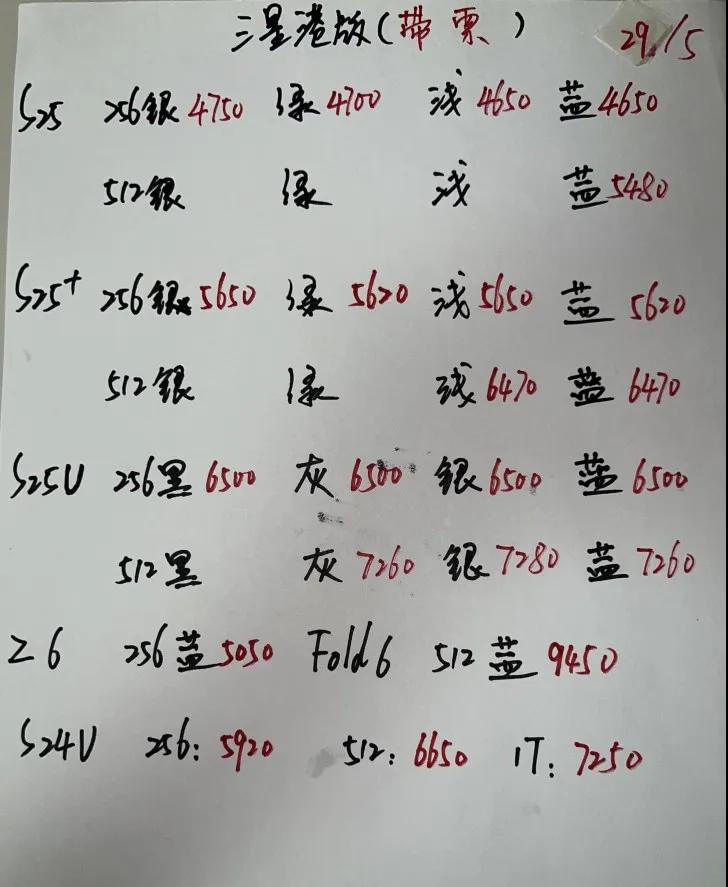 三星港版(带票) 29/5
S25 256銀4750 绿4700 浅4650 蓝4650
512銀 绿 浅 蓝5480
S25+ 256銀5650 绿5620 浅5650 蓝5620
512銀 绿 浅6470 蓝6470
S25U 256黑6500 灰6500 銀6500 蓝6500
512黑 灰7260 銀7280 蓝7260
Z6 256蓝5050 Fold6 512蓝9450
S24U 256:5920 512:6650 1T:7250